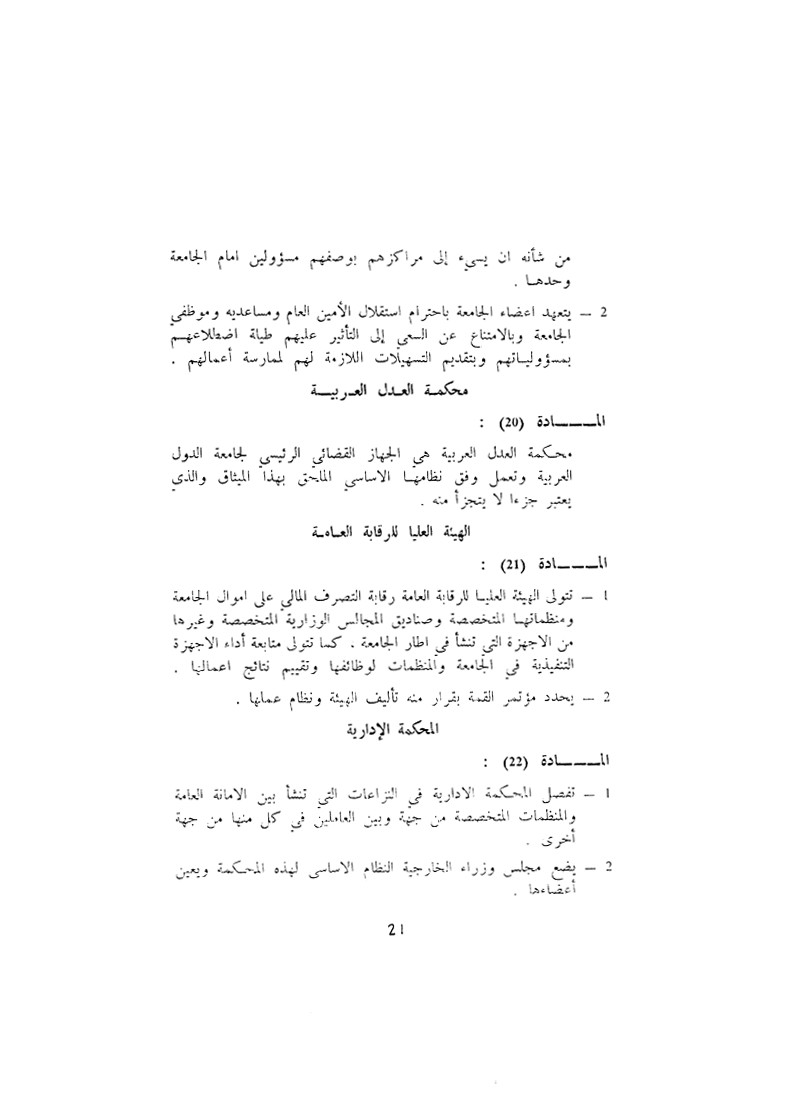 من شأنه ان يسيء إلى مراكزهم بوصفهم مسؤولين امام الجامعة
وحدهــا .
2 ــ يتعهد اعضاء الجامعة باحترام استقلال الأمين العام ومساعديه وموظفي
الجامعة وبالامتناع عن السعي إلى التأثير عليهم طيلة اضطلاعهــم
بمسؤوليــاتهم وبتقديم التسهيلات اللازمة لهم لممارسة أعمالهم .
محكمــة العــدل العــربيــــة
المــــــــادة (20) :
محـكمة العدل العربية هي الجهاز القضائي الرئيسي لجامعة الدول
العربية وتعمل وفق نظامهــا الاساسي الملحق بهذا الميثاق والذي
يعتبر جزءا لا يتجزأ منه .
الهيئة العليا للرقابة العــامــة
المــــــــادة (21) :
1 ــ تتولى الهيئة العليــا للرقابة العامة رقابة التصرف المالي على اموال الجامعة
ومنظماتهــا المتخصصة وصناديق المجالس الوزارية المتخصصة وغيرها
من الاجهزة التي تنشأ في اطار الجامعة . كما تتولى متابعة أداء الاجهزة
التنفيذية في الجامعة والمنظمات لوظائفها وتقييم نتائج اعمالها .
2 ــ يحدد مؤتمر القمة بقرار منه تأليف الهيئة ونظام عملها .
المحكمة الإدارية
المــــــــادة (22) :
1 ــ تفصل المحـكمة الادارية في النزاعات التي تنشأ بين الامانة العامة
والمنظمات المتخصصة من جهة وبين العاملين في كل منها من جهة
أخرى .
2 ــ يضع مجلس وزراء الخارجية النظام الاساسى لهذه المحـكمة ويعين
أعضاءها .
21